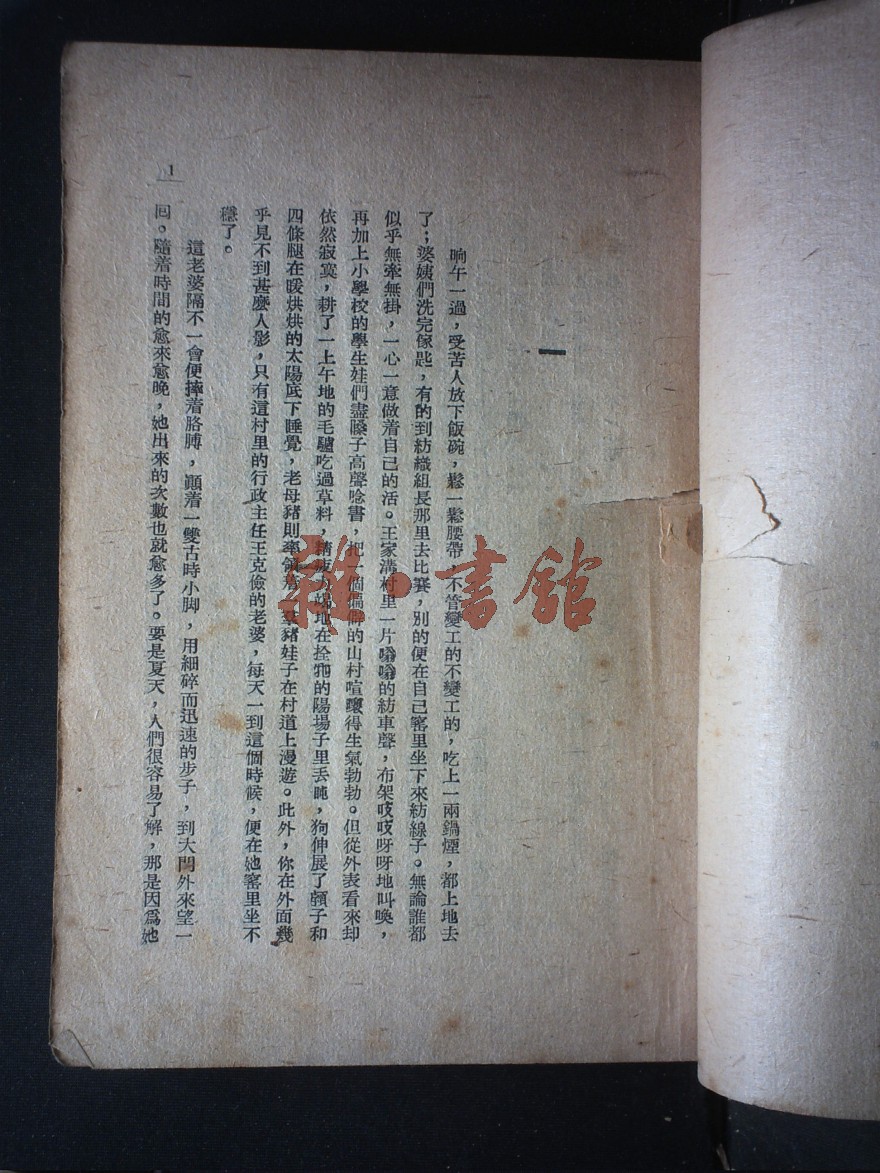 一
晌午一過，受苦人放下飯碗，鬆一鬆腰帶，不管變工的不變工的，吃上一兩鍋煙，都上地去
了；婆姨們洗完傢匙，有的到紡織組長那里去比賽，別的便在自己窰里坐下來紡線子。無論誰都
似乎無牽無掛，一心一意做着自己的活。王家溝村里一片嗡嗡的紡車聲，布架吱吱呀呀地叫喚，
再加上小學校的學生娃們盡嗓子高聲唸書，把一個偏僻的山村喧嚷得生氣勃勃。但從外表看來却
依然寂寞，耕了一上午地的毛驢吃過草料，地在拴牠的陽場子里丢盹，狗伸展了頷子和
四條腿在暖烘烘的太陽底下睡覺，老母豬則率領着一羣豬娃子在村道上漫遊。此外，你在外面幾
乎見不到甚麼人影，只有這村里的行政主任王克儉的老婆，每天一到這個時候，便在她窰里坐不
穩了。
這老婆隔不一會便摔着胳膊，顚着一雙古時小脚，用細碎而迅速的步子，到大門外來望一
回。隨着時間的愈來愈晚，她出來的次數也就愈多了。要是夏天，人們很容易了解，那是因爲她
1
雜·書館